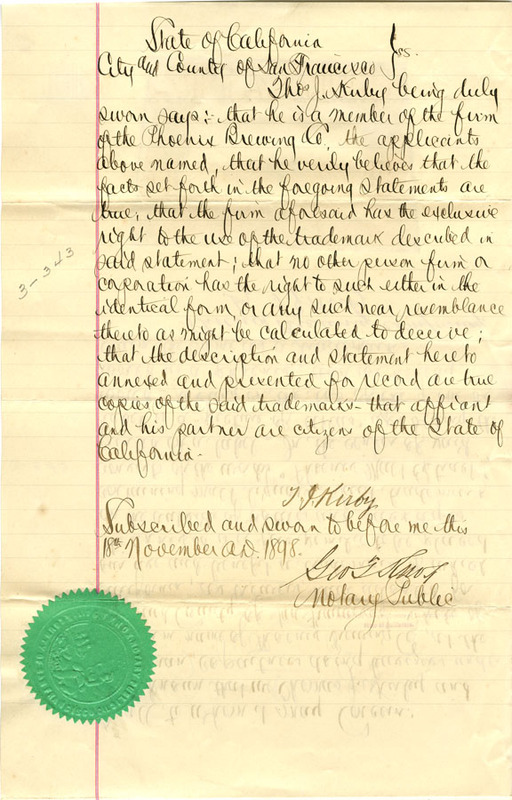 State of California
City and County of San Francisco } ss.
Thos J. Kirby being duly
sworn says:- that he is a member of the firm
of the Phoenix Brewing Co, the applicants
above named, that he verily believes that the
facts set forth in the foregoing statements are
true; that the firm aforesaid has the exclusive
right to the use of the trademark described in
said statement; that no other person firm or
corporation has the right to such either in the
identical form or any such near resemblance
thereto as might be calculated to deceive;
that the description and statement hereto
annexed and presented for record are true
copies of the said trademarks - that affiant
and his partner are citizens of the State of
California -
3-343
T J Kirby
Subscribed and sworn to before me this
18th November A.D. 1898.
Geo T Knox
Notary Public